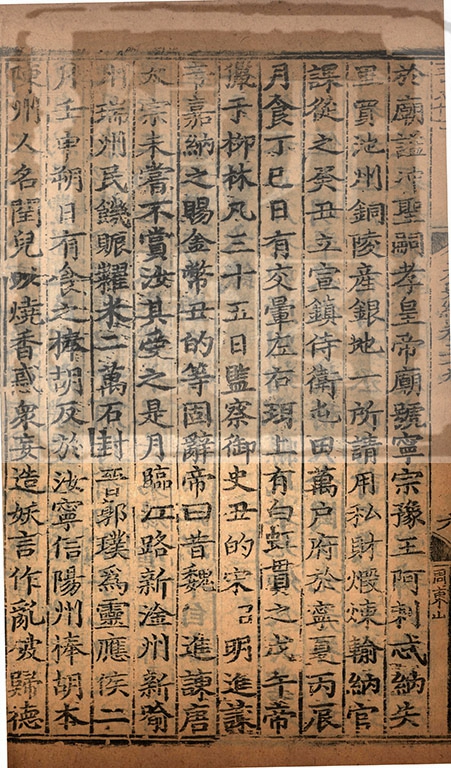 於廟謚冲聖嗣孝皇帝廟號寧宗豫王阿剌忒納失
里買池州銅陵産銀地一所請用私財煅煉輸納官
課從之癸丑立宣鎮侍衛屯田萬户府於寧夏丙辰
月食丁巳日有交暈左右珥上有白虹貫之戊午帝
獵于柳林凡三十五日監察御史丑的宋明進諫
帝嘉納之賜金幣丑的等固辭帝曰昔魏進諫唐
太宗未嘗不賞汝其受之是月臨江路新淦州新喻
州瑞州民饑賑糶米二萬石封晉郭璞爲靈應侯二
月壬申朔日有食之棒胡反於汝寧信陽州棒胡本
陳州人名閏兒以燒香惑衆妄造妖言作亂破歸德
周東山